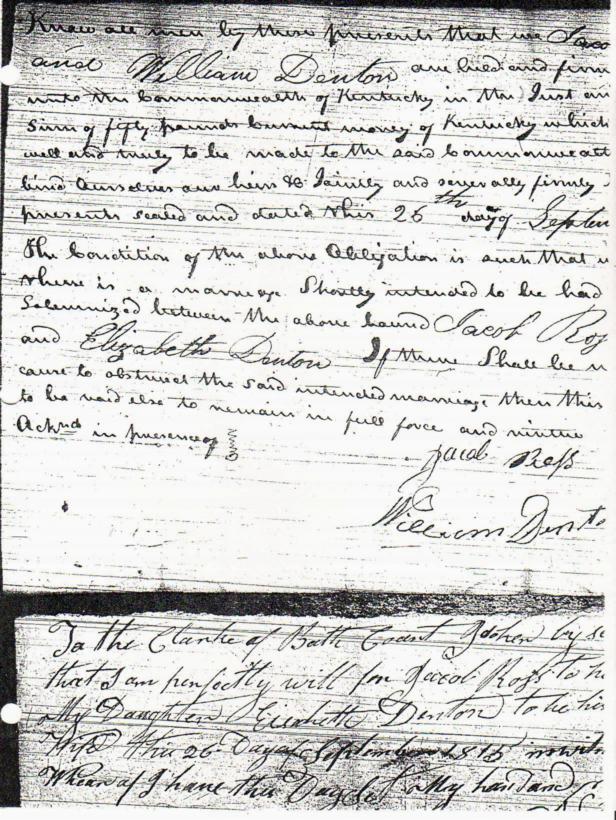 Know all men by these presents that we Jaco
and William Denton are held and firm
unto the Commonwealth of Kentucky in the Just an
Sum of fifty pounds Current money of Kentucky which
well and truly to be made to the said Commonwealt
bind Ourselves our heirs &c Jointly and severally firmly
presents sealed and dated this 26th day of Septem
The Condition of the above Obligation is such that w
there is a marriage Shortly intended to be had
Solemnized between the above bound Jacob Ros
and Elizabeth Denton If there Shall be n
cause to obstruct the said intended marriage then this
to be void else to remain in full force and virtue
Acknd in presence of
Jacob Ross
William Dento
To the Clarke of Bath Count
that I am perfictly will for Jacob Ross to h
My Daughter Elizibeth Denton to be his
Wife this 26 Day of September 1815
Whear of I have this Day Set My hand and